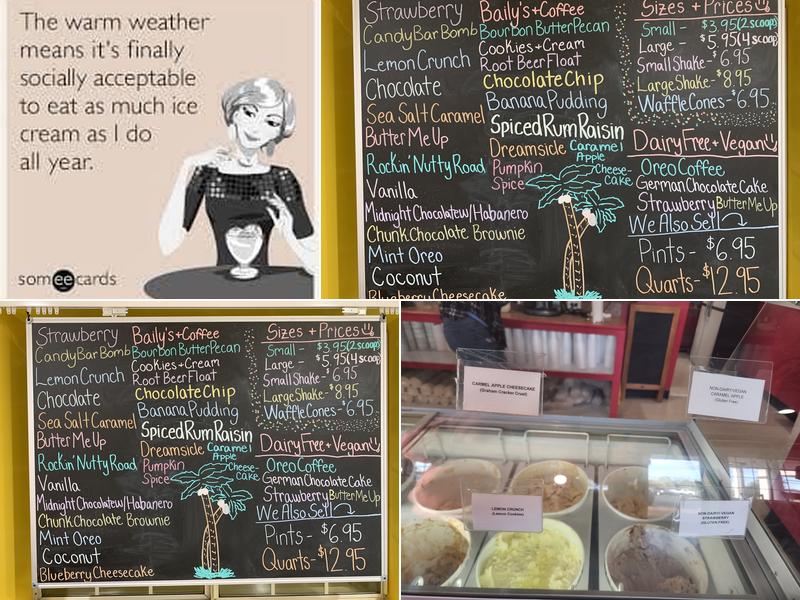 The warm weather
means it's finally
socially acceptable
to eat as much ice
cream as I do
all year.
somee cards
Strawberry
CandyBarBomb
Lemon Crunch
Chocolate
Sea Salt Caramel
Butter Me Up
Rockin' Nutty Road
Vanilla
Midnight Chocolate w/Habanero
Chunk Chocolate Brownie
Mint Oreo
Coconut
Blueberry Cheesecake
Baily's + Coffee
Bourbon Butter Pecan
Cookies + Cream
Root Beer Float
Chocolate Chip
Banana Pudding
Spiced Rum Raisin
Dreamside
Pumpkin
Spice
Caramel
Apple
Cheese-
Cake
Sizes + Prices
Small - $3.95 (2 scoop)
Large - $5.95 (4 scoop)
Small Shake - $6.95
Large Shake - $8.95
Waffle Cones - $6.95
Dairy Free + Vegan
Oreo Coffee
German Chocolate Cake
Strawberry Butter Me Up
We Also Sell
Pints - $6.95
Quarts - $12.95
Strawberry
CandyBarBomb
Lemon Crunch
Chocolate
Sea Salt Caramel
Butter Me Up
Rockin' Nutty Road
Vanilla
Midnight Chocolate w/Habanero
Chunk Chocolate Brownie
Mint Oreo
Coconut
Blueberry Cheesecake
Baily's + Coffee
Bourbon Butter Pecan
Cookies + Cream
Root Beer Float
Chocolate Chip
Banana Pudding
Spiced Rum Raisin
Dreamside
Pumpkin
Spice
Caramel
Apple
Cheese-
Cake
Sizes + Prices
Small - $3.95 (2 scoop)
Large - $5.95 (4 scoop)
Small Shake - $6.95
Large Shake - $8.95
Waffle Cones - $6.95
Dairy Free + Vegan
Oreo Coffee
German Chocolate Cake
Strawberry Butter Me Up
We Also Sell
Pints - $6.95
Quarts - $12.95
CARMEL APPLE CHEESECAKE
(Graham Cracker Crust)
NON-DAIRY/VEGAN
CARAMEL APPLE
(Gluten Free)
LEMON CRUNCH
(Lemon Cookies)
NON-DAIRY/VEGAN
STRAWBERRY
(GLUTEN FREE)